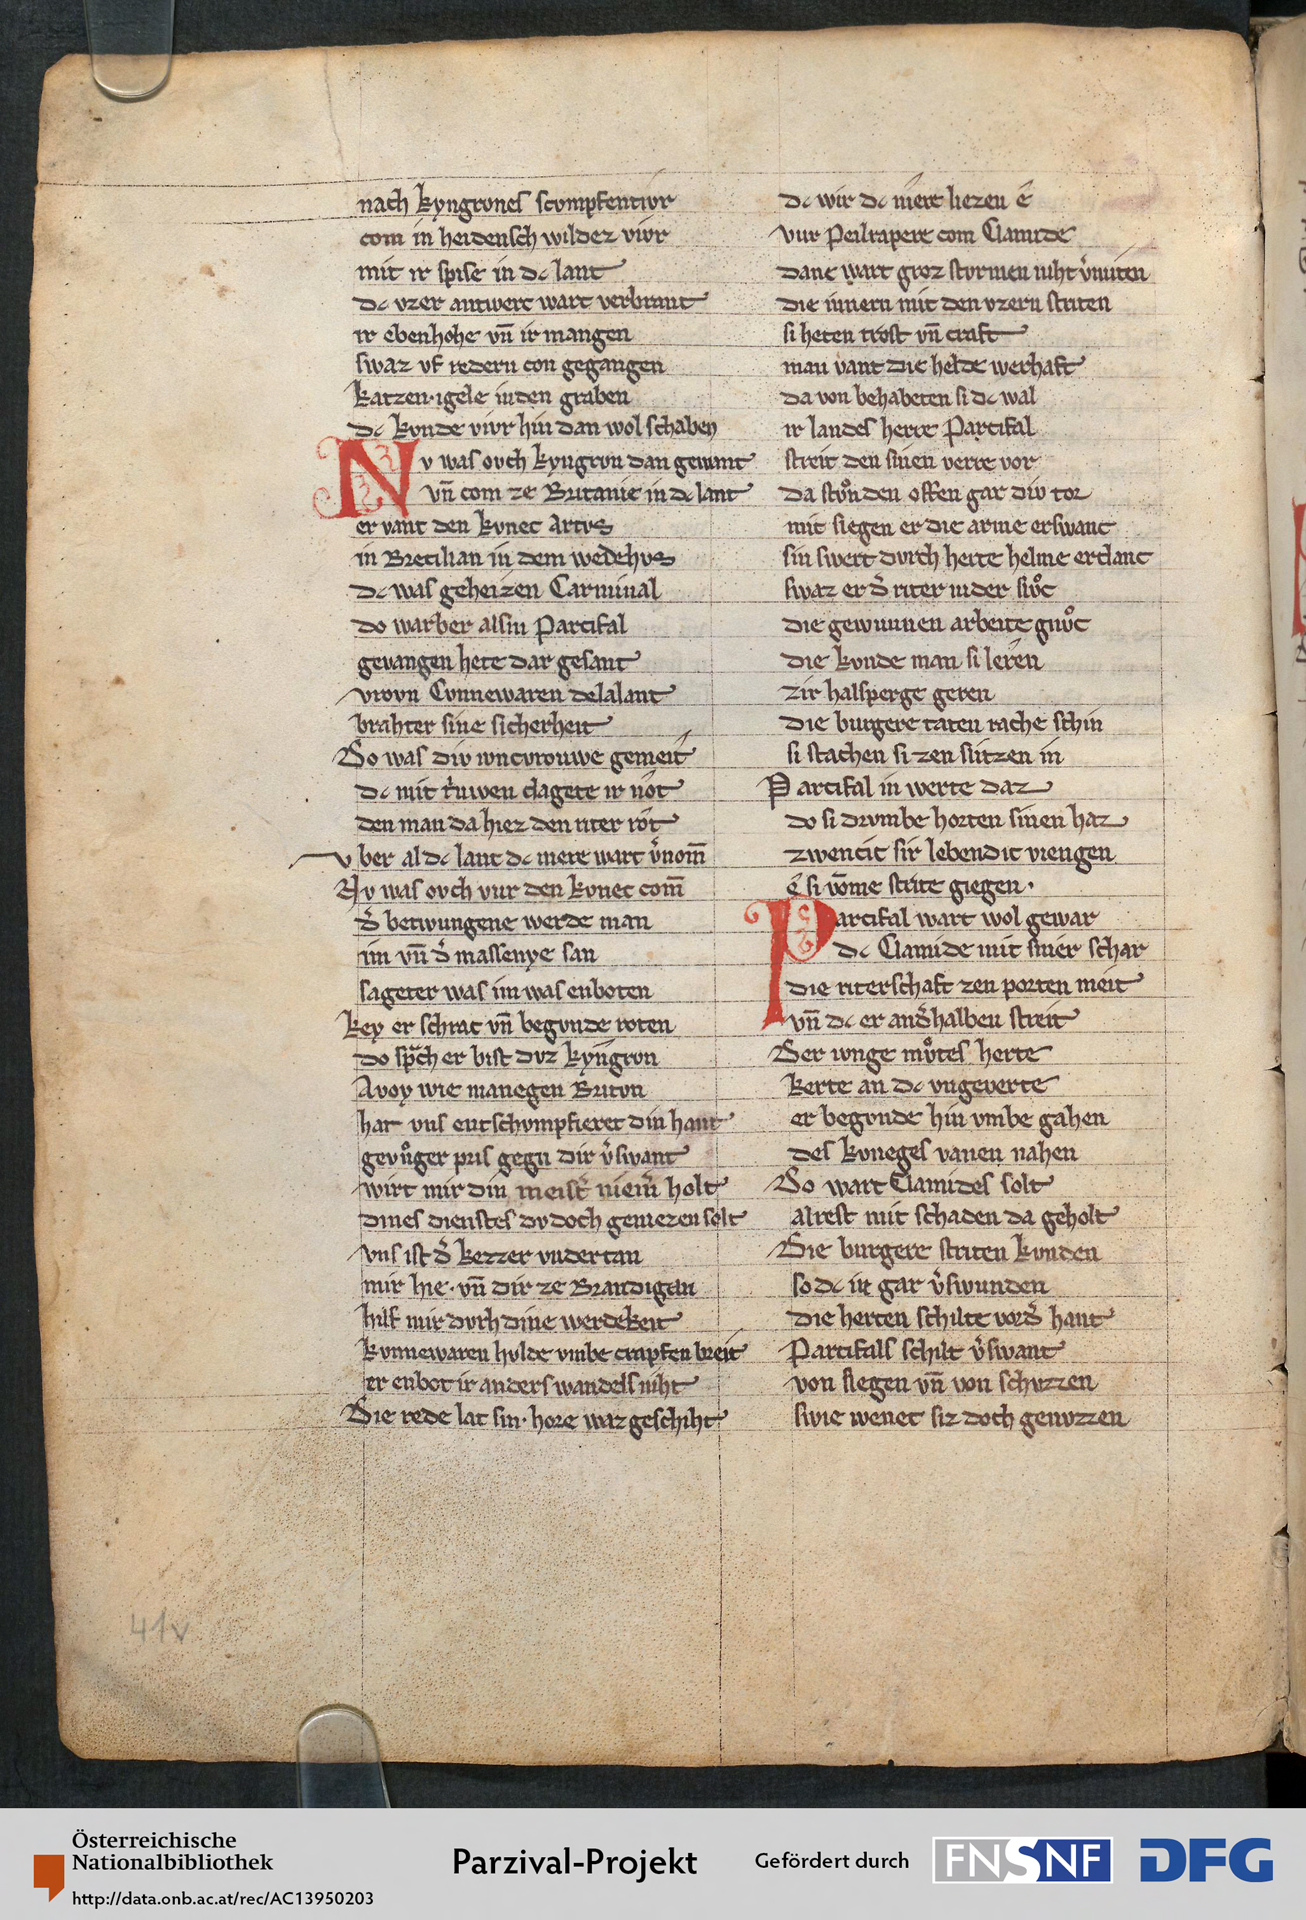 nach kyngrones scompfentivr
com in heidensch wildez vivr
mit ir spise in dc lant
dc vzer antwerc wart verbrant
ir ebenhohe vn̄ ir mangen
swaz vf redern con gegangen
katzen·igele in den graben
dc kvnde vivr hin dan wol schaben
Nv was ovch kyngrvn dan gewant
vn̄ com ze Britanie in dc lant
er vant den kvnec Artvs
in Brecilian in dem weidehvs
dc was geheizen Carminal
do warber alsin Parcifal
gevangen hete dar gesant
vrovn Cvnnewaren delalant
brahter sine sicherheit
Do was div ivncvrouwe gemeit
dc mit t͛uwen clagete ir not
den man da hiez den riter rot
vber al dc lant dc mere wart v͛nom̄
Nv was ovch vur den kvnec com̄
d͛ betwungene werde man
im vn̄ d͛ massenye san
sageter was im was enboten
key er schrac vn̄ begvnde roten
do sp̄ch er bist dvz kyngron
Avoy wie manegen Britvn
hat vns entschvmpfieret din hant
gevůger pris gegn dir v͛swant
wirt mir din meist͛ niem͛ holt
dines dienstes dv doch geniezen solt
vns ist d͛ kezzer vndertan
mir hie·vn̄ dir ze Brandigan
hilf mir dvrh dine werdekeit
kvnnewaren hvlde vmbe crapfen breit
er enbot ir anders wandels niht
Die rede lat sin·hore waz geschiht
dc wir dc mere liezen e
vur Peilrapere com Clamide
dane wart groz stvrmen niht v͛miten
die innern mit den vzern striten
si heten trost vn̄ craft
man vant die helde werhaft
da von behabeten si dc wal
ir landes herre Parcifal
streit den sinen verre vor
da stůnden offen gar div tor
mit slegen er die arme erswanc
sin swert dvrch herte helme erclanc
swaz er d͛ riter nider slůc
die gewunnen arbeite gnůc
die kvnde man si leren
zir halsperge geren
die burgere taten rache schin
si stachen si zen slitzen in
Parcifal in werte daz
do si drvmbe horten sinen haz
zwencic sir lebendic viengen
e si vōme strite giegen·
Parcifal wart wol gewar
dc Clamide mit siner schar
die riterschaft zen porten meit
vn̄ dc er and͛halben streit
Der ivnge můtes herte
kerte an dc vngeverte
er begvnde hin vmbe gahen
des kvneges vanen nahen
Do wart Clamides solt
alrest mit schaden da geholt
Die burgere striten kvnden
so dc in gar v͛swunden
die herten schilte vor d͛ hant
Parcifals schilt v͛swant
von slegen vn̄ von schvzzen
swie wenec siz doch genvzzen
41v
Österreichische
Nationalbibliothek
http://data.onb.ac.at/rec/AC13950203
Parzival-Projekt
Gefördert durch
FNSNF
DFG